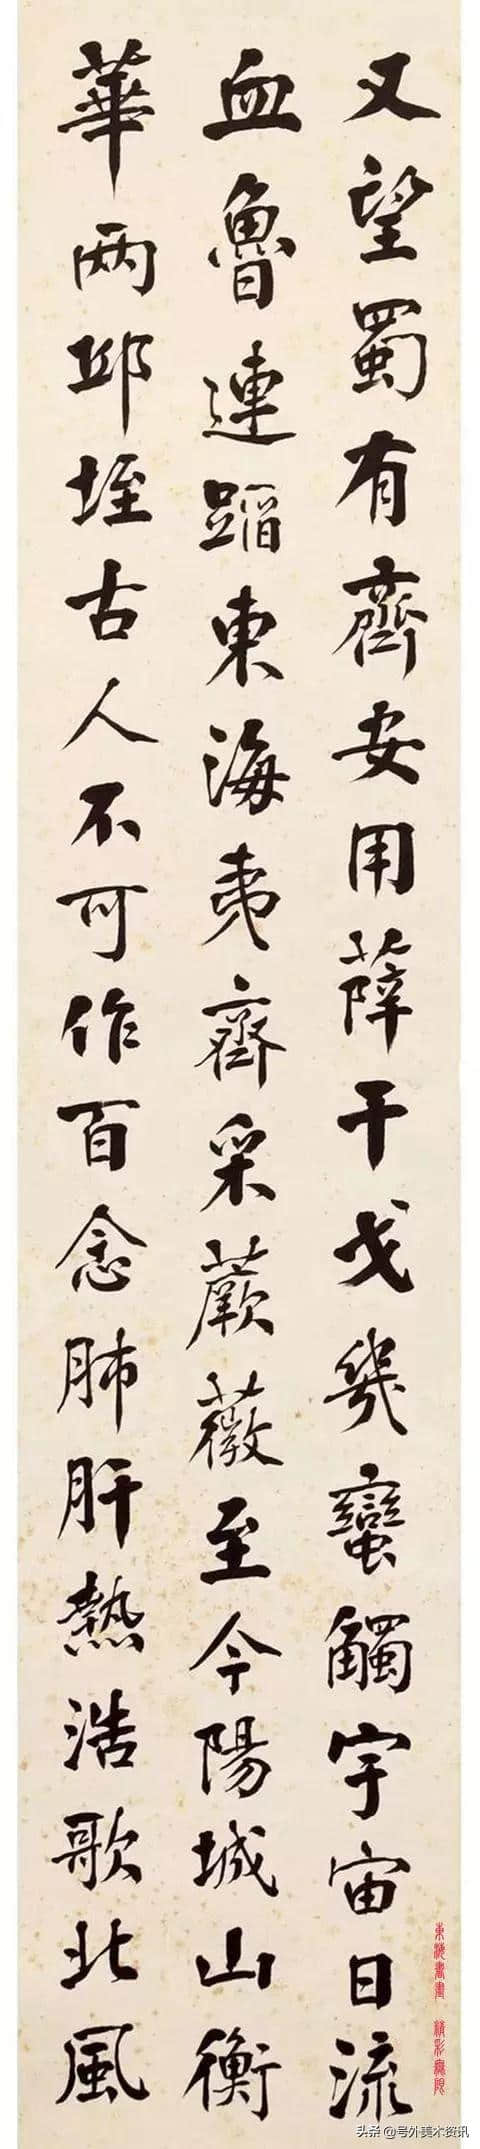 又望蜀有齊安用薛干戈幾蠻觸宇宙日流
血魯連蹈東海夷齊采蕨薇至今陽城山衡
華兩邱垤古人不可作百念肺肝熱浩歌北風
東海書畫 精彩無限
头条 @号外美术资讯